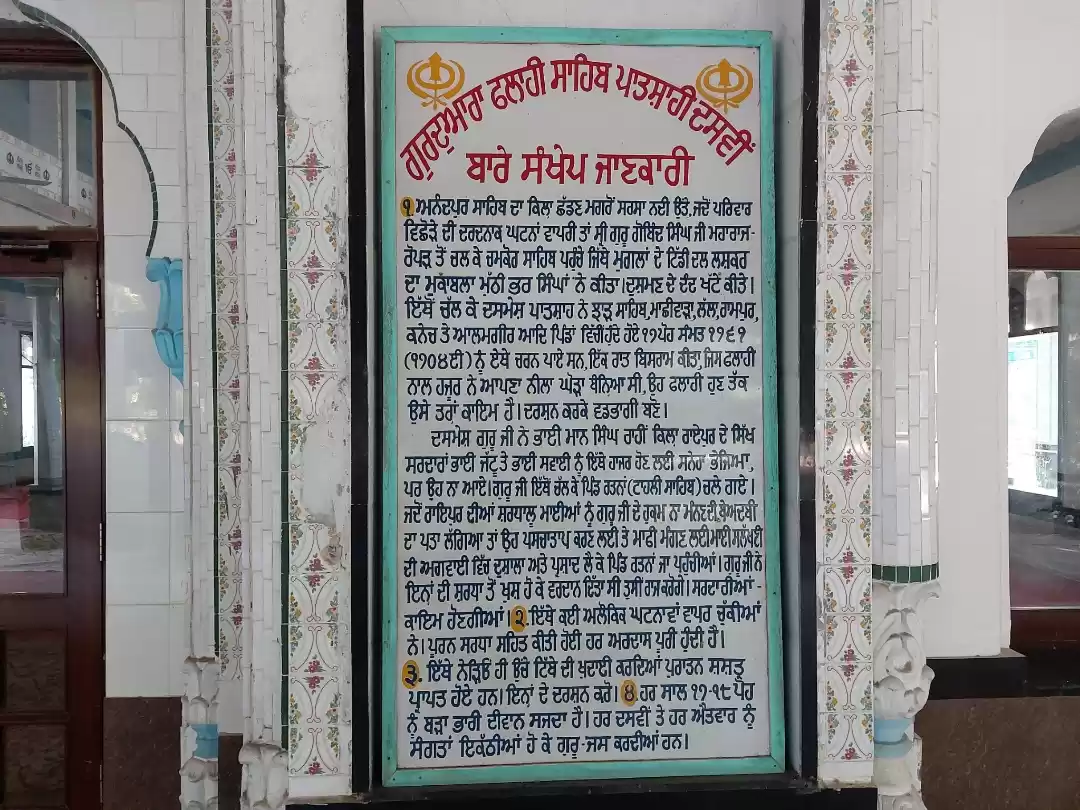 ਗੁਰਦੁਆਰਾ ਫਲਾਹੀ ਸਾਹਿਬ ਪਾਤਸ਼ਾਹੀ ਦਸਵੀਂ
ਬਾਰੇ ਸੰਖੇਪ ਜਾਣਕਾਰੀ
੧. ਅਨੰਦਪੁਰ ਸਾਹਿਬ ਦਾ ਕਿਲਾ ਛੱਡਣ ਮਗਰੋਂ ਸਰਸਾ ਨਦੀ ਉੱਤੇ, ਜਦੋਂ ਪਰਿਵਾਰ
ਵਿਛੋੜੇ ਦੀ ਦਰਦਨਾਕ ਘਟਨਾਂ ਵਾਪਰੀ ਤਾਂ ਸ੍ਰੀ ਗੁਰੂ ਗੋਬਿੰਦ ਸਿੰਘ ਜੀ ਮਹਾਰਾਜ-
ਰੋਪੜ ਤੋਂ ਚਲ ਕੇ ਚਮਕੌਰ ਸਾਹਿਬ ਪਹੁੰਚੇ ਜਿੱਥੇ ਮੁਗਲਾਂ ਦੇ ਟਿੱਡੀ ਦਲ ਲਸ਼ਕਰ
ਦਾ ਮੁਕਾਬਲਾ ਮੁੱਠੀ ਭਰ ਸਿੰਘਾਂ ਨੇ ਕੀਤਾ। ਦੁਸ਼ਮਣ ਦੇ ਦੰਦ ਖੱਟੇ ਕੀਤੇ।
ਇਥੋਂ ਚੱਲ ਕੇ ਦਸਮੇਸ਼ ਪਾਤਸ਼ਾਹ ਨੇ ਝਾੜ ਸਾਹਿਬ, ਮਾਛੀਵਾੜਾ, ਲੱਲ, ਰਾਮਪੁਰ,
ਕਨੇਚ ਤੇ ਆਲਮਗੀਰ ਆਦਿ ਪਿੰਡਾਂ ਵਿੱਚੀਂ ਹੁੰਦੇ ਹੋਏ ੧੭ ਪੋਹ ਸੰਮਤ ੧੭੬੧
(੧੭੦੪ ਈ) ਨੂੰ ਏਥੇ ਚਰਨ ਪਾਏ ਸਨ, ਇੱਕ ਰਾਤ ਬਿਸਰਾਮ ਕੀਤਾ, ਜਿਸ ਫਲਾਹੀ
ਨਾਲ ਹਜ਼ੂਰ ਨੇ ਆਪਣਾ ਨੀਲਾ ਘੋੜਾ ਬੰਨ੍ਹਿਆ ਸੀ, ਉਹ ਫਲਾਹੀ ਹੁਣ ਤੱਕ
ਉਸੇ ਤਰ੍ਹਾਂ ਕਾਇਮ ਹੈ। ਦਰਸ਼ਨ ਕਰਕੇ ਵਡਭਾਗੀ ਬਣੋ।
ਦਸਮੇਸ਼ ਗੁਰੂ ਜੀ ਨੇ ਭਾਈ ਮਾਨ ਸਿੰਘ ਰਾਹੀਂ ਕਿਲਾ ਰਾਏਪੁਰ ਦੇ ਸਿੱਖ
ਸਰਦਾਰਾਂ ਭਾਈ ਜੱਟੂ ਤੇ ਭਾਈ ਸਵਾਈ ਨੂੰ ਇੱਥੇ ਹਾਜਰ ਹੋਣ ਲਈ ਸਨੇਹਾ ਭੇਜਿਆ,
ਪਰ ਉਹ ਨਾ ਆਏ। ਗੁਰੂ ਜੀ ਇੱਥੇ ਚੱਲ ਕੇ ਪਿੰਡ ਰਤਨਾਂ (ਟਾਹਲੀ ਸਾਹਿਬ) ਚਲੇ ਗਏ।
ਜਦੋਂ ਰਾਇਪੁਰ ਦੀਆਂ ਸ਼ਰਧਾਲੂ ਮਾਈਆਂ ਨੂੰ ਗੁਰੂ ਜੀ ਦੇ ਹੁਕਮ ਨਾ ਮੰਨਣ ਦੀ, ਬੇਅਦਬੀ
ਦਾ ਪਤਾ ਲੱਗਿਆ ਤਾਂ ਉਹ ਪਸਚਾਤਾਪ ਕਰਣ ਲਈ ਤੇ ਮਾਫੀ ਮੰਗਣ ਲਈ ਮਾਈ ਸੁਲੱਖਣੀ
ਦੀ ਅਗਵਾਈ ਵਿੱਚ ਦੁਸ਼ਾਲਾ ਅਤੇ ਪ੍ਰਸ਼ਾਦ ਲੈ ਕੇ ਪਿੰਡ ਰਤਨਾਂ ਜਾ ਪਹੁੰਚੀਆਂ। ਗੁਰੂ ਜੀ ਨੇ
ਇਨ੍ਹਾਂ ਦੀ ਸ਼ਰਧਾ ਤੋਂ ਖੁਸ਼ ਹੋ ਕੇ ਵਰਦਾਨ ਦਿੱਤਾ ਸੀ ਤੁਸੀਂ ਰਾਜ ਕਰੋਗੇ। ਸਰਦਾਰੀਆਂ-
ਕਾਇਮ ਹੋਣਗੀਆਂ। ੨. ਇੱਥੇ ਕਈ ਅਲੌਕਿਕ ਘਟਨਾਵਾਂ ਵਾਪਰ ਚੁੱਕੀਆਂ
ਨੇ। ਪੂਰਨ ਸਰਧਾ ਸਹਿਤ ਕੀਤੀ ਹੋਈ ਹਰ ਅਰਦਾਸ ਪੂਰੀ ਹੁੰਦੀ ਹੈ।
੩. ਇੱਥੇ ਨੇੜਿਓਂ ਹੀ ਉਚੇ ਟਿੱਬੇ ਦੀ ਖੁਦਾਈ ਕਰਦਿਆਂ ਪੁਰਾਤਨ ਸ਼ਸਤ੍ਰ
ਪ੍ਰਾਪਤ ਹੋਏ ਹਨ। ਇਨ੍ਹਾਂ ਦੇ ਦਰਸ਼ਨ ਕਰੋ। ੪. ਹਰ ਸਾਲ ੧੭-੧੮ ਪੋਹ
ਨੂੰ ਬੜਾ ਭਾਰੀ ਦੀਵਾਨ ਸਜਦਾ ਹੈ। ਹਰ ਦਸਵੀਂ ਤੇ ਹਰ ਐਤਵਾਰ ਨੂੰ
ਸੰਗਤਾਂ ਇਕੱਠੀਆਂ ਹੋ ਕੇ ਗੁਰੂ-ਜਸ ਕਰਦੀਆਂ ਹਨ।